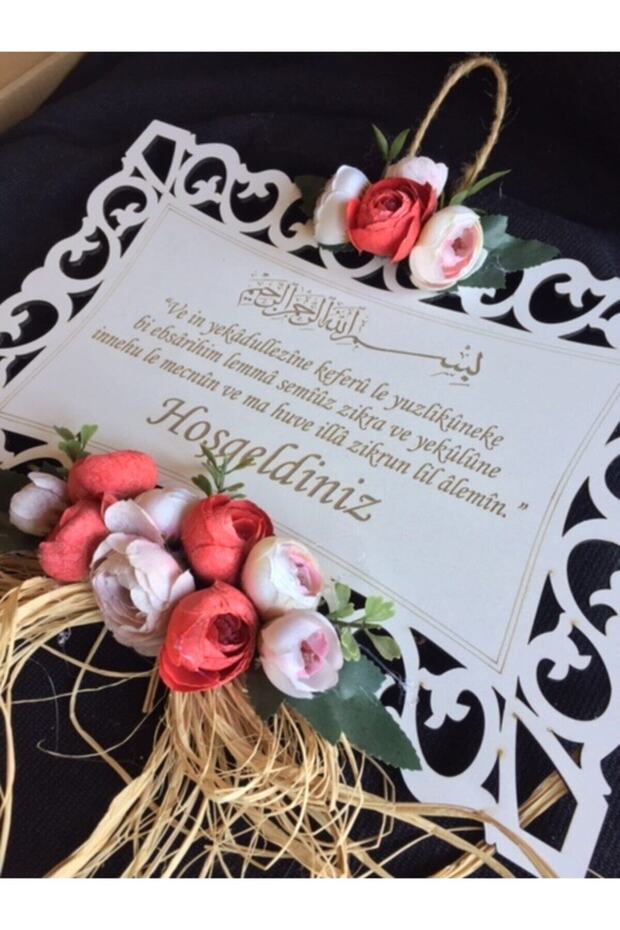 بِسْمِ اللهِ الرَّحْمٰنِ الرَّحِيْمِ
“Ve in yekâdullezîne keferû le yuzlikûneke
bi ebsârihim lemmâ semiûz zikra ve yekûlûne
innehu le mecnûn ve ma huve illâ zikrun lil âlemîn.”
Hoşgeldiniz